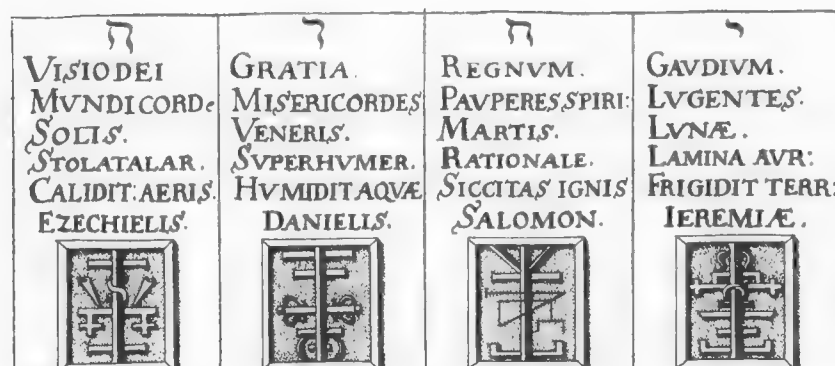 ה
VISIO DEI
MVNDICORDe
SOLIS.
STOLATALAR.
CALIDIT: AERIS.
EZECHIELIS.
ו
GRATIA.
MISERICORDES
VENERIS.
SVPERHVMER.
HVMIDIT AQVÆ
DANIELIS.
ה
REGNVM.
PAVPERES SPIRI:
MARTIS.
RATIONALE.
SICCITAS IGNIS
SALOMON.
י
GAVDIVM.
LVGENTES.
LVNÆ.
LAMINA AVR:
FRIGIDIT TERR:
IEREMIÆ.